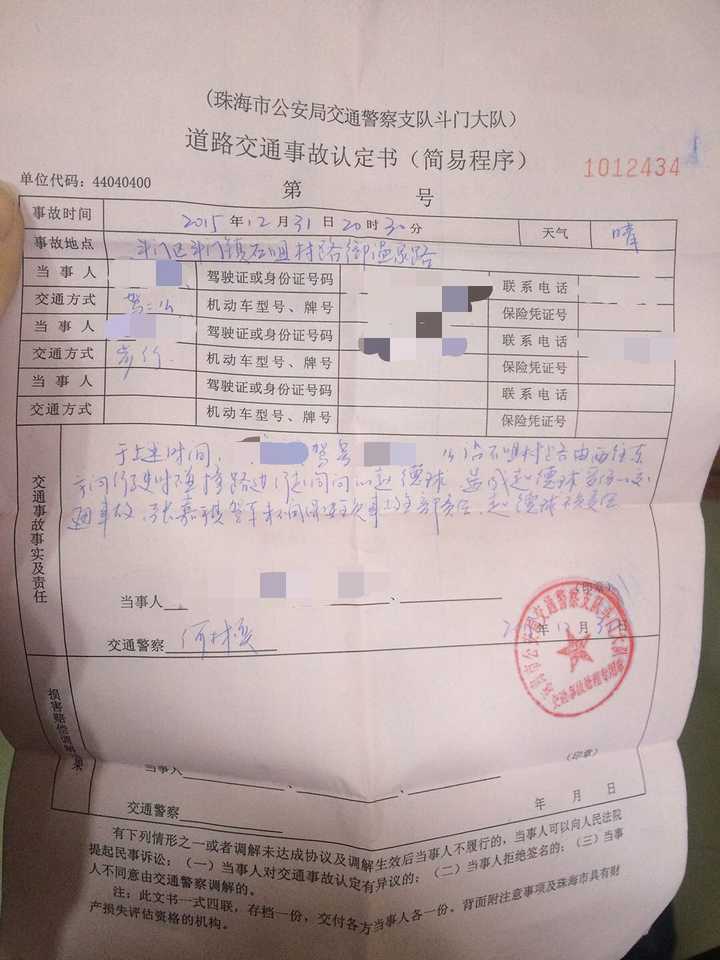 (珠海市公安局交通警察支队斗门大队)
道路交通事故认定书(简易程序)
1012434
单位代码:44040400
第 号
事故时间 2015年12月31日20时30分 天气 晴
事故地点 斗门区斗门镇 村路御温泉路
当事人 驾驶证或身份证号码 联系电话
交通方式 机动车型号、牌号 保险凭证号
当事人 驾驶证或身份证号码 联系电话
交通方式 步行 机动车型号、牌号 保险凭证号
当事人 驾驶证或身份证号码 联系电话
交通方式 机动车型号、牌号 保险凭证号
交通事故事实及责任
于上述时间, 驾 村路由西往东
方向行驶时 路边行走 赵德球 造成赵德球受伤 交
通事故, 赵德球 责任
当事人 、 、 (印章)
交通警察 年12月31日
珠海市公安局交通警察支队斗门大队
交通事故处理专用章
损害赔偿调解结果
当事人 、 、 (印章)
交通警察 年 月 日
有下列情形之一或者调解未达成协议及调解生效后当事人不履行的,当事人可以向人民法院
提起民事诉讼:(一)当事人对交通事故认定有异议的;(二)当事人拒绝签名的;(三)当事
人不同意由交通警察调解的。
注:此文书一式四联,存档一份,交付各方当事人各一份。背面附注意事项及珠海市具有财
产损失评估资格的机构。